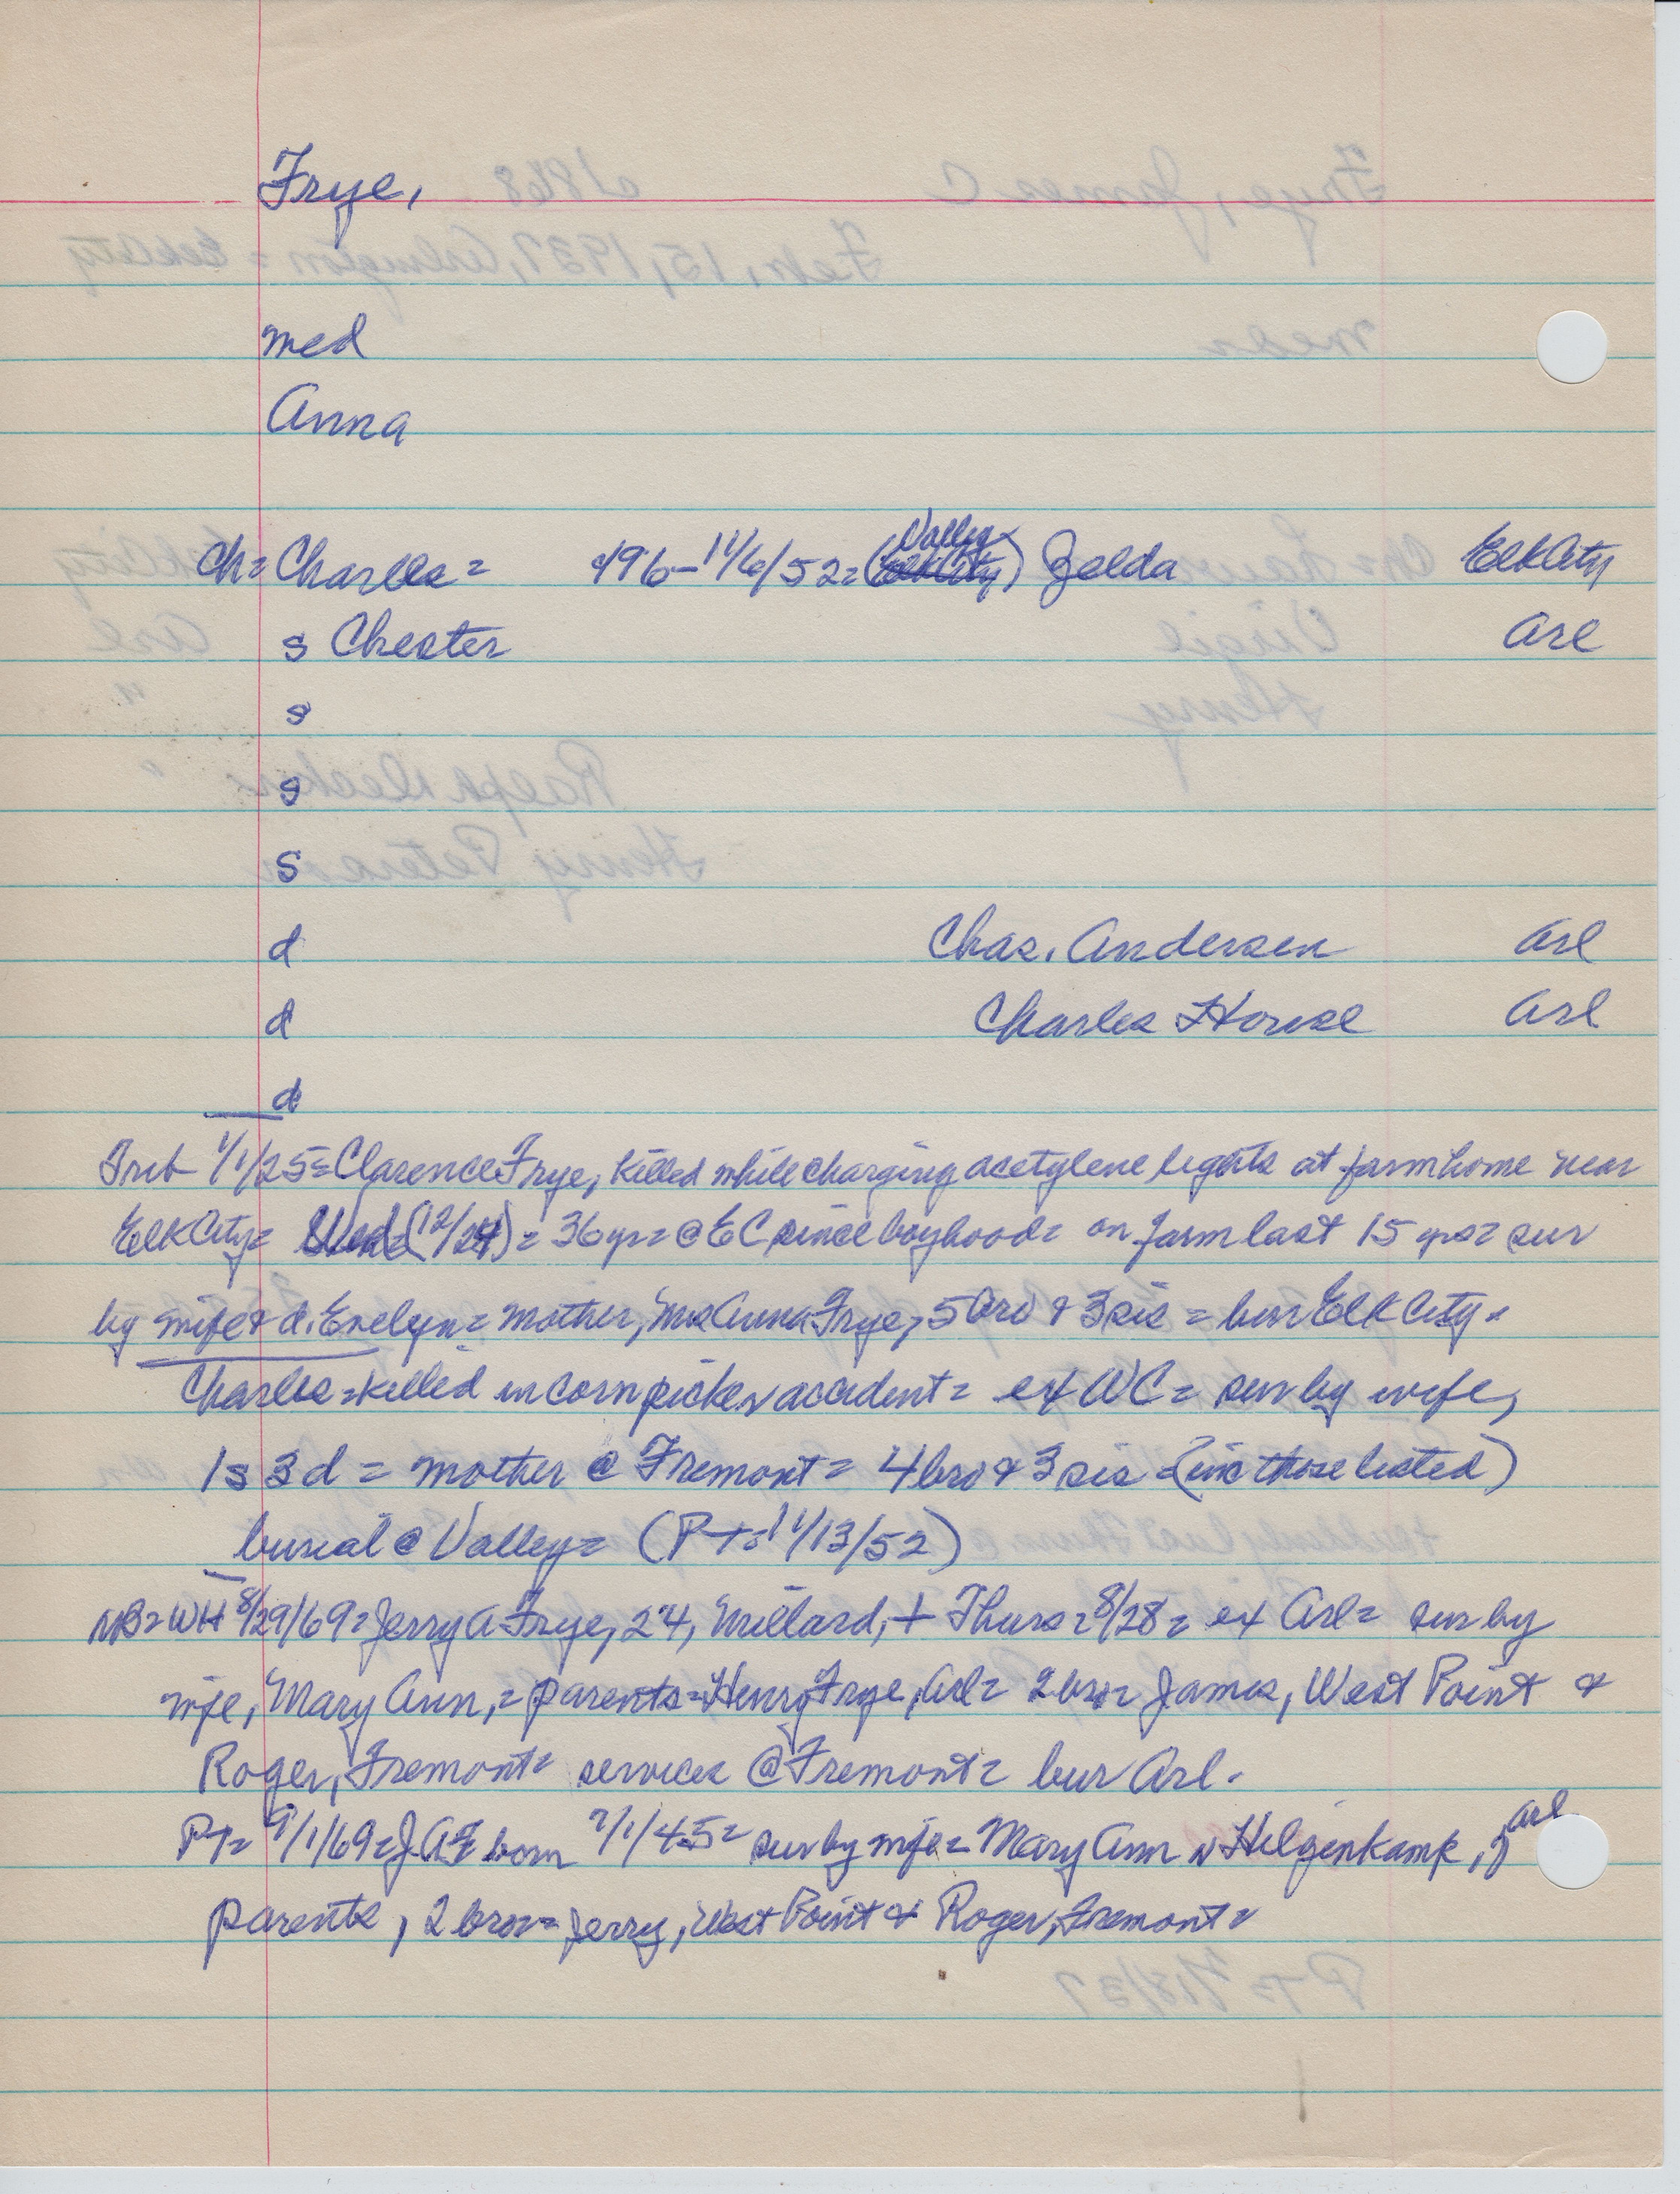 Frye,
med
Anna
ch= Charles= 1896-11/6/52= (Valley) Zelda Elk City
s Chester Arl
s
s
s
d Chas. Andersen Arl
d Charles House Arl
d
Trib 1/1/25= Clarence Frye, killed while charging acetylene lights at farm home near
Elk City= Wed (12/24)= 36 yr= @ EC since boyhood= on farm last 15 yrs= sur
by wife & d. Evelyn= mother, Mrs Anna Frye, 5 bro & 3 sis = bur Elk City.
Charles=killed in cornpicker accident= ex WC= sur by wife,
1s 3d = mother @ Fremont= 4 bro & 3 sis =(inc those listed)
burial @ Valley= (PT= 11/13/52)
NB= WH 8/29/69= Jerry A Frye, 24, Millard, + Thurs= 8/28= ex Arl= sur by
wife, Mary Ann,= parents= Henry Frye, Arl= 2 bro= James, West Point &
Roger, Fremont= services @ Fremont= bur Arl.
PT= 9/1/69= JAF born 7/1/45= sur by wife= Mary Ann n Hilgenkamp, Arl
parents, 2 bros= Jerry, West Point & Roger, Fremont=